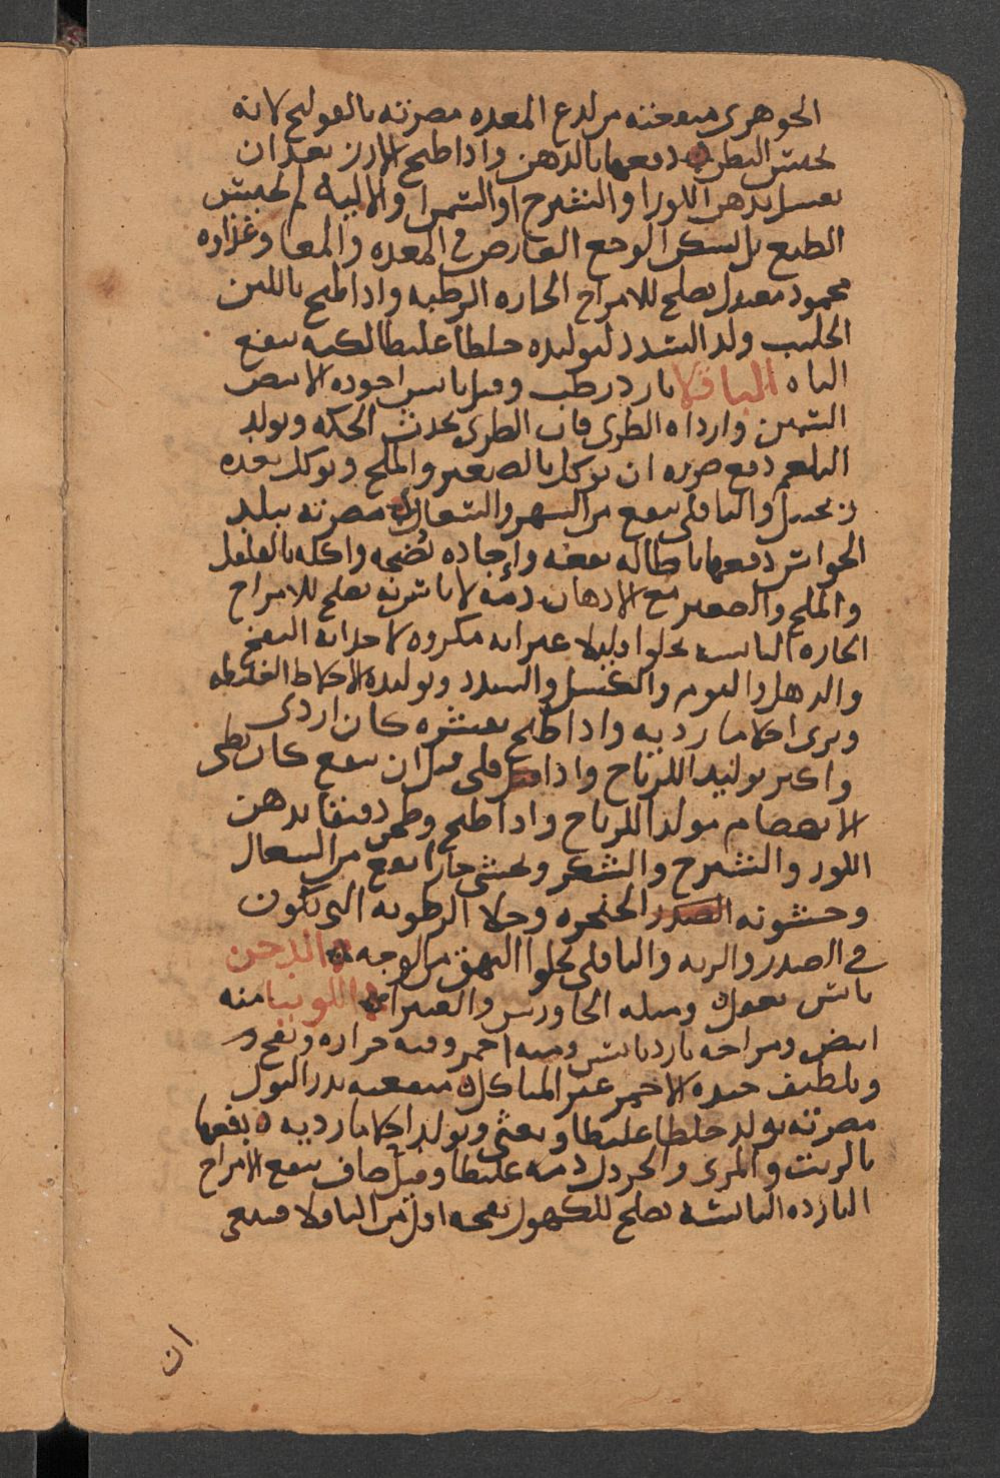 الجوهري منفعته من لدع المعده مضرته بالقولنج لانه
يحبس البطن دفعها بالدهن واذا طبخ الارز بعد ان
يغسل بدهن اللوز او الشيرج او السمن او الاليه لم يحبس
الطبع بل يسكن الوجع العارض في المعده والمعا وغذاوه
محمود معتدل يصلح للامزاج الحاره الرطبه واذا طبخ باللبن
الحليب ولد السدد لتوليده خلطا غليظا لكنه ينفع
الباه الباقلا بارد رطب وقيل يابس اجوده الابيض
السمين واردأه الطري فان الطري يحدث الحكه ويولد
البلغم دفع ضرره ان يوكل بالصعتر والملح ويوكل بعده
زنجبيل والباقلى ينفع من السهر والسعال مضرته يبلد
الحواس دفعها باطاله نقعه وإجاده نُضجه واكله بالفلفل
والملح والصعتر مع الادهان دمه لا باس به يصلح للامزاج
الحاره اليابسه يجلوا قليلا غير انه مكروه لاحداثه النفخ
والذهل والنوم والكسل والسدد وتوليده الاخلاط الغليظه
ويرى احلاما رديه واذا طبخ بقشره كان اردى
واكثر توليدا للرياح واذا قلي قبل ان ينقع كان بطي
الانهضام مولدا للرياح واذا طبخ وطحن دقيقا بدهن
اللوز والشيرج والسكر وتحسى حارا نفع من السعال
وخشونه الصدر الحنجره وجلا الرطوبه التي تكون
في الصدر والريه والباقلى يجلوا البهق من الوجه والدخن
يابس يعقل ومثله الجاورس واللوبيا منه
ابيض ومزاجه بارد يابس ومنه احمر وفيه حراره ونفخ
وتلطيف جيده الاحمر غير المتاكل منفعته يدر البول
مضرته يولد خلطا غليظا ويغثي ويولد احلاما رديه دفعها
بالزيت والمري والخردل دمه غليظا وقيل صاف ينفع الامزاج
البارده اليابسه يصلح للكهول نفخه اقل من الباقلا فينبغي
ان